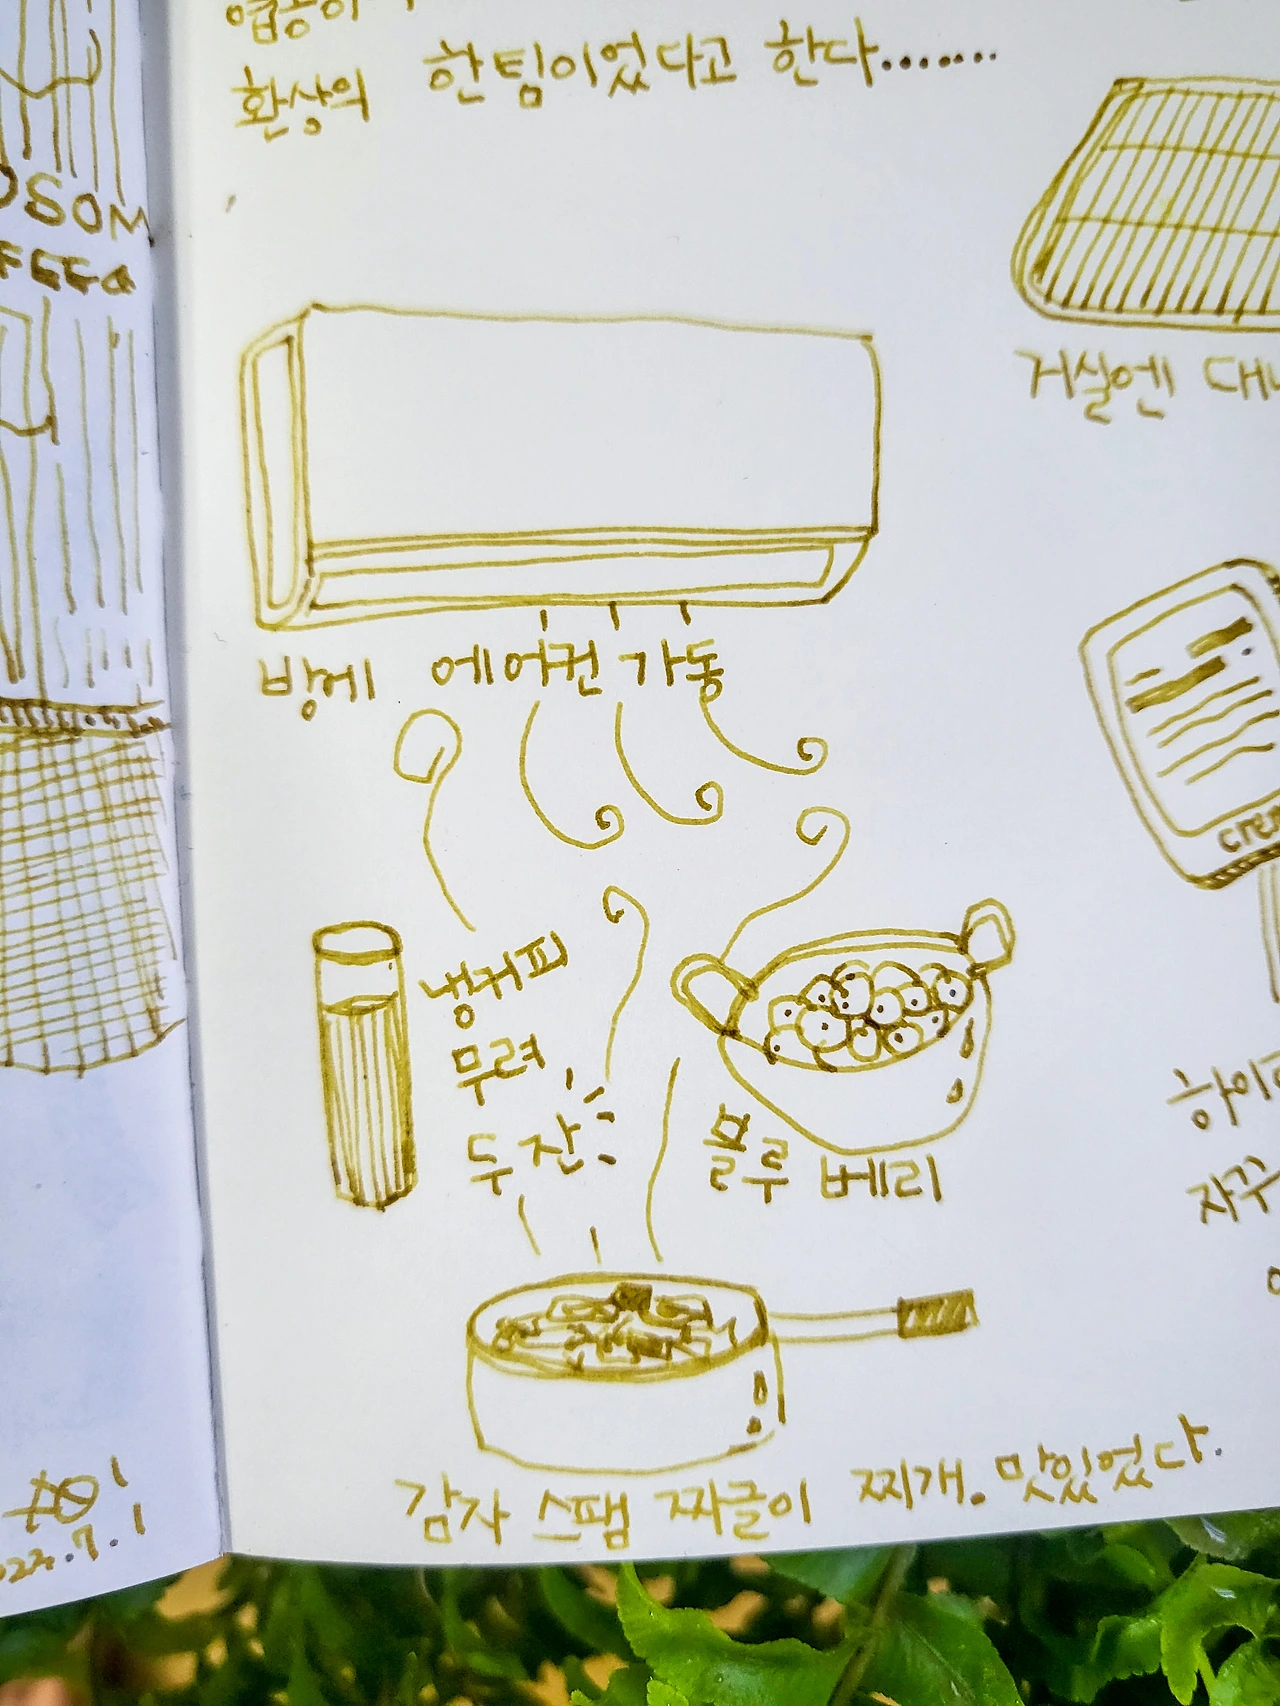 환상의 한팀이었다고 한다.......
거실엔
방에 에어컨 가동
냉커피
무려
두 잔
블루베리
감자 스팸 짜글이 찌개. 맛있었다.
OSOM
7.1